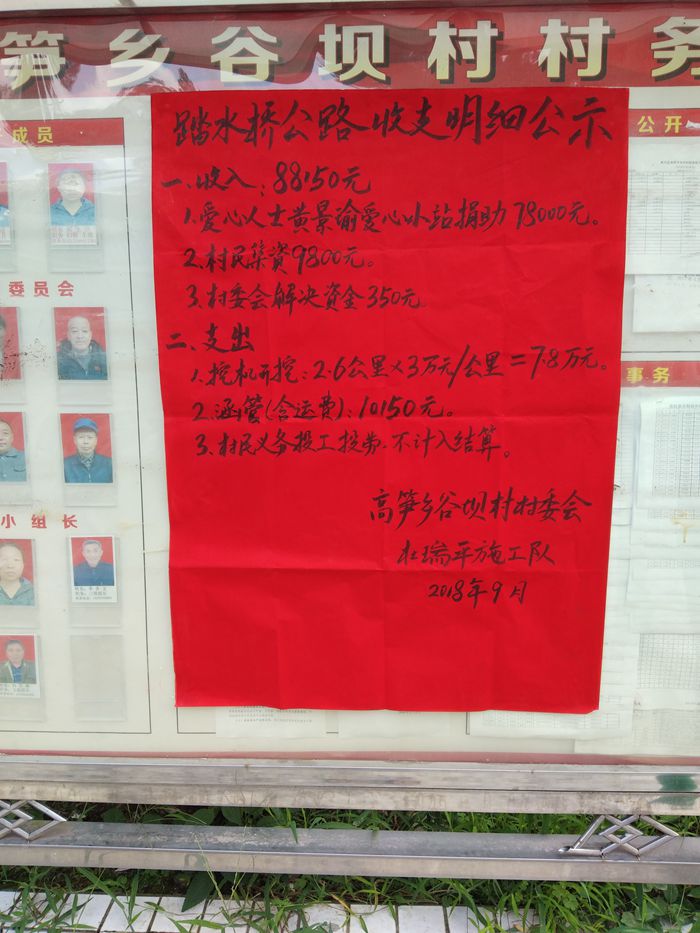 笋乡谷坝村村务
成员
公开
踏水桥公路收支明细公示
一.收入:88150元
1.爱心人士黄景谕爱心小站捐助78000元。
2.村民集资9800元。
3.村委会解决资金350元
二、支出
1.挖机开挖:2.6公里×3万元/公里=7.8万元。
2.涵管(含运费):10150元。
3.村民义务投工投劳.不计入结算。
高笋乡谷坝村村委会
杜瑞平施工队
2018年9月
委员会
事务
小组长